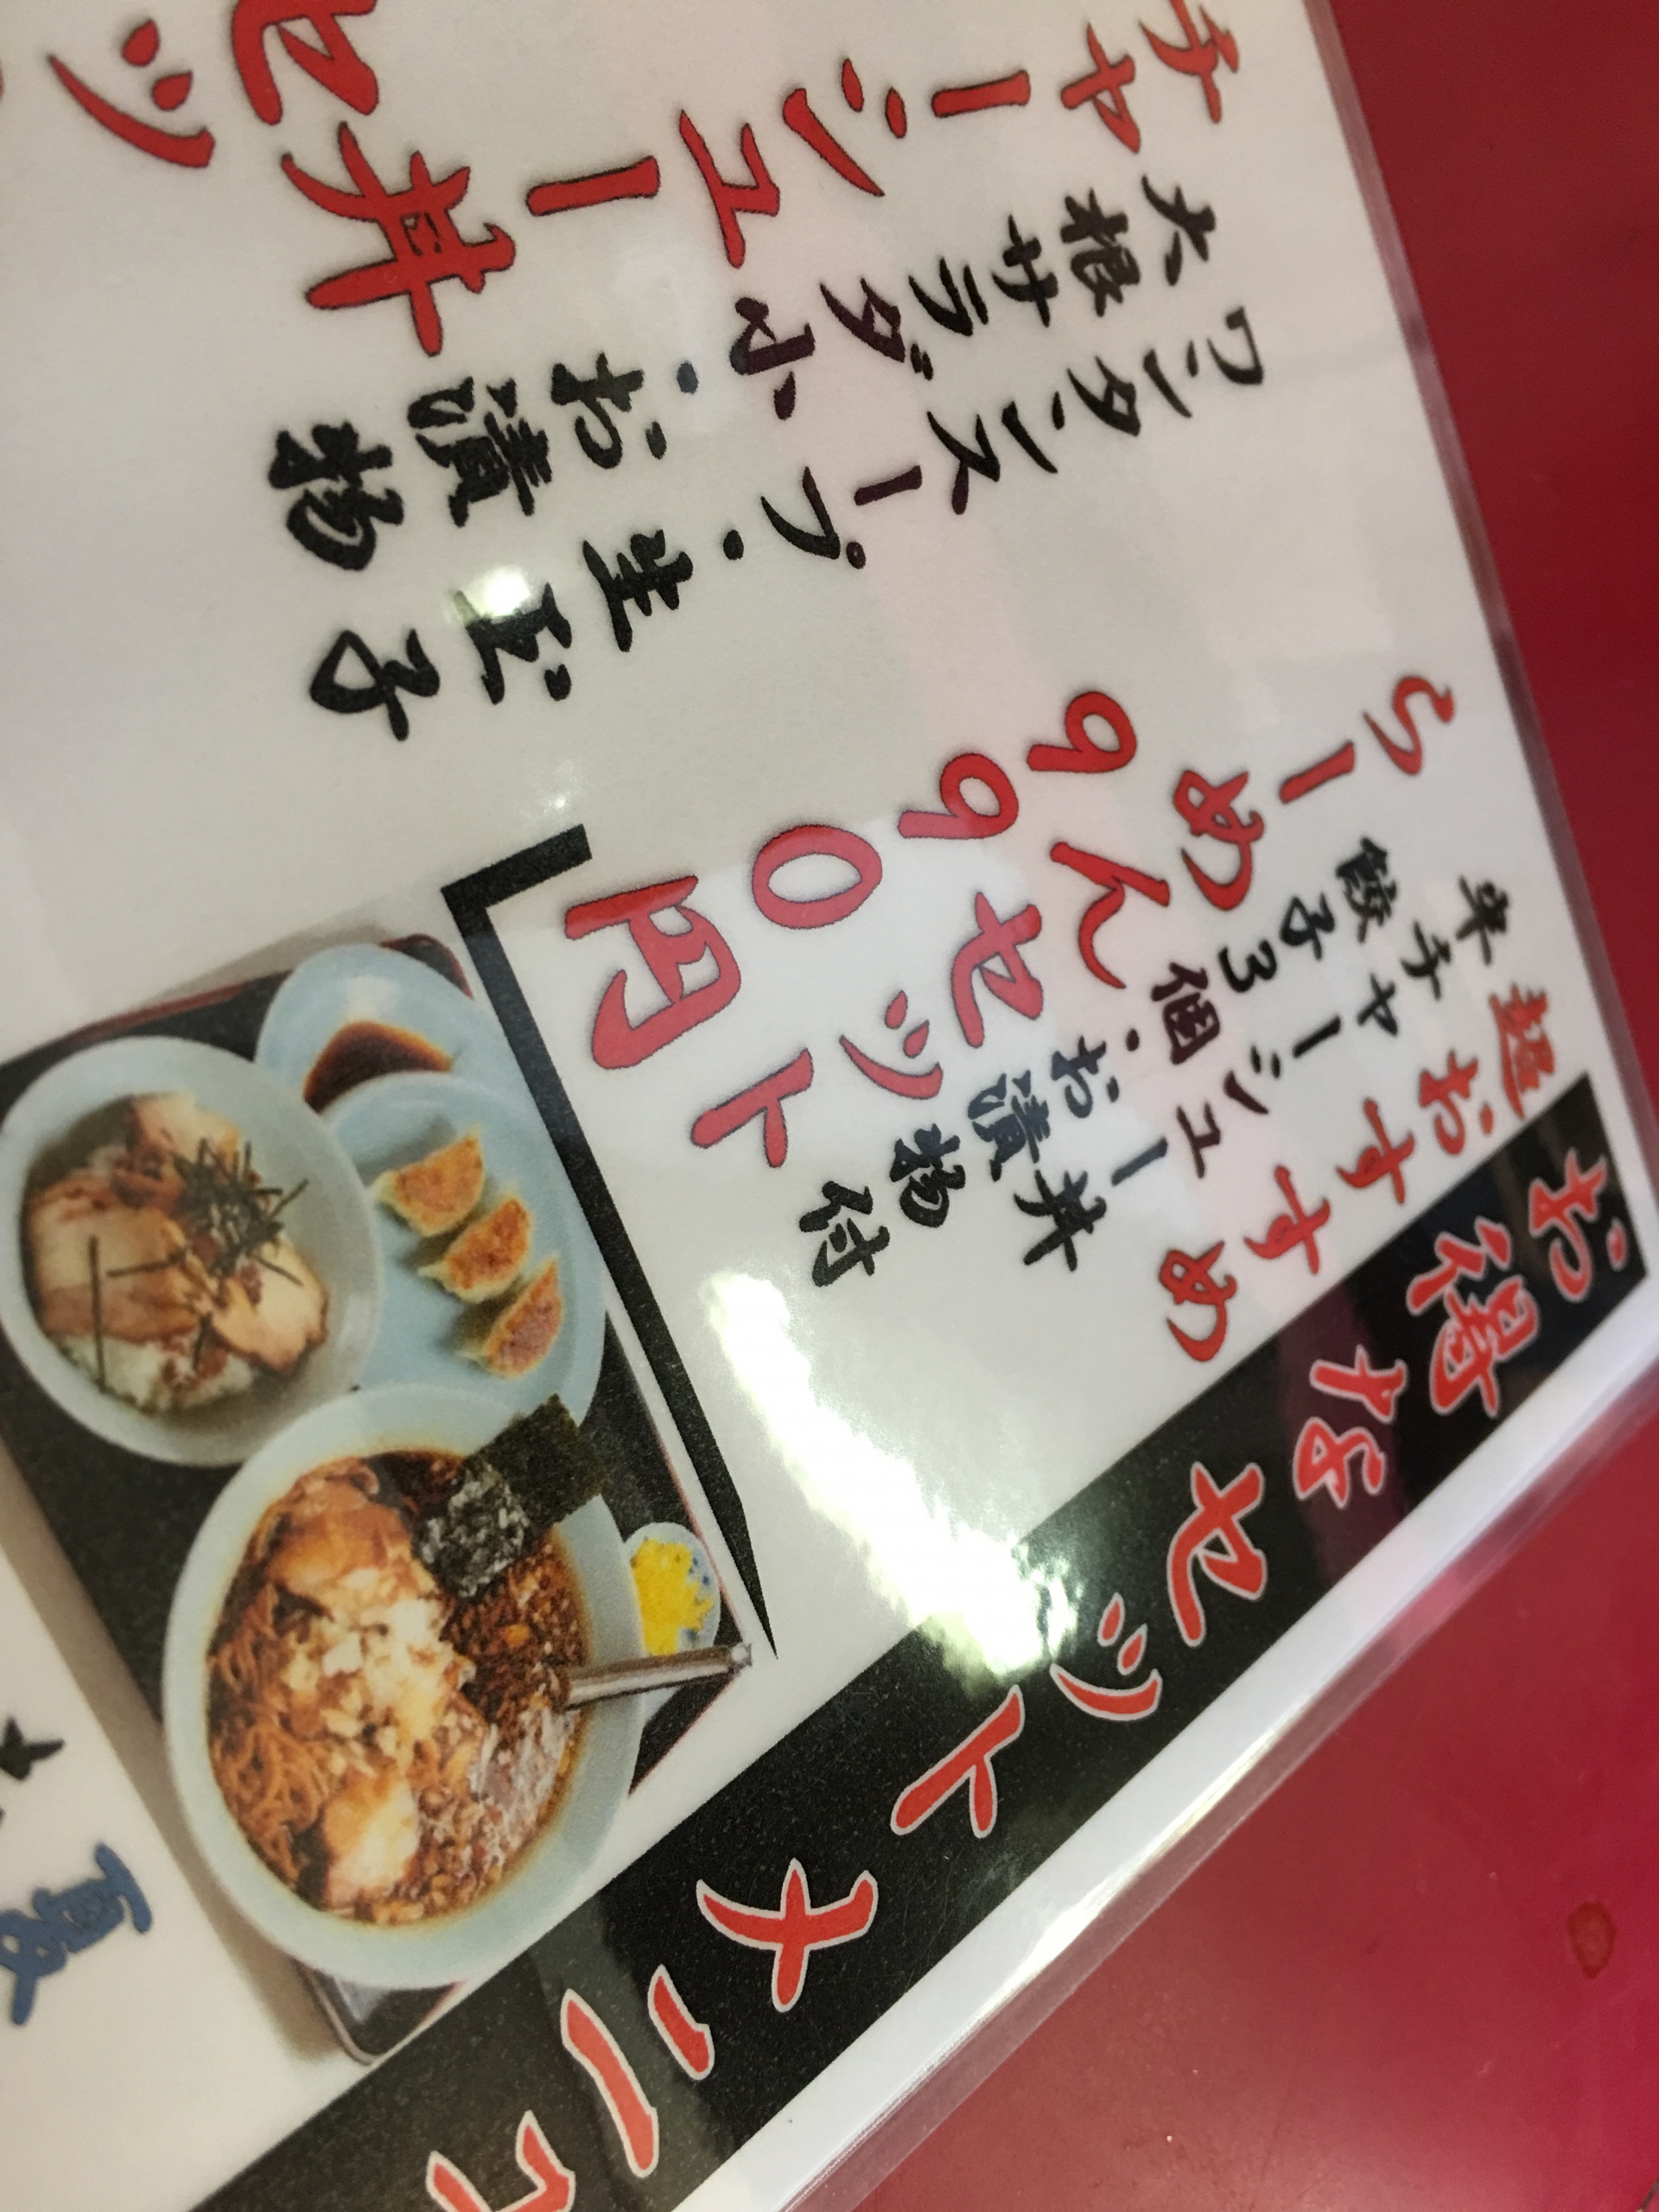 お得なセットメニュ
超おすすめ
半チャーシュー丼
餃子3個・お漬物付
らーめんセット
990円
ワンタンスープ・生玉子
大根サラダ小・お漬物
チャーシュー丼
セッ
夏